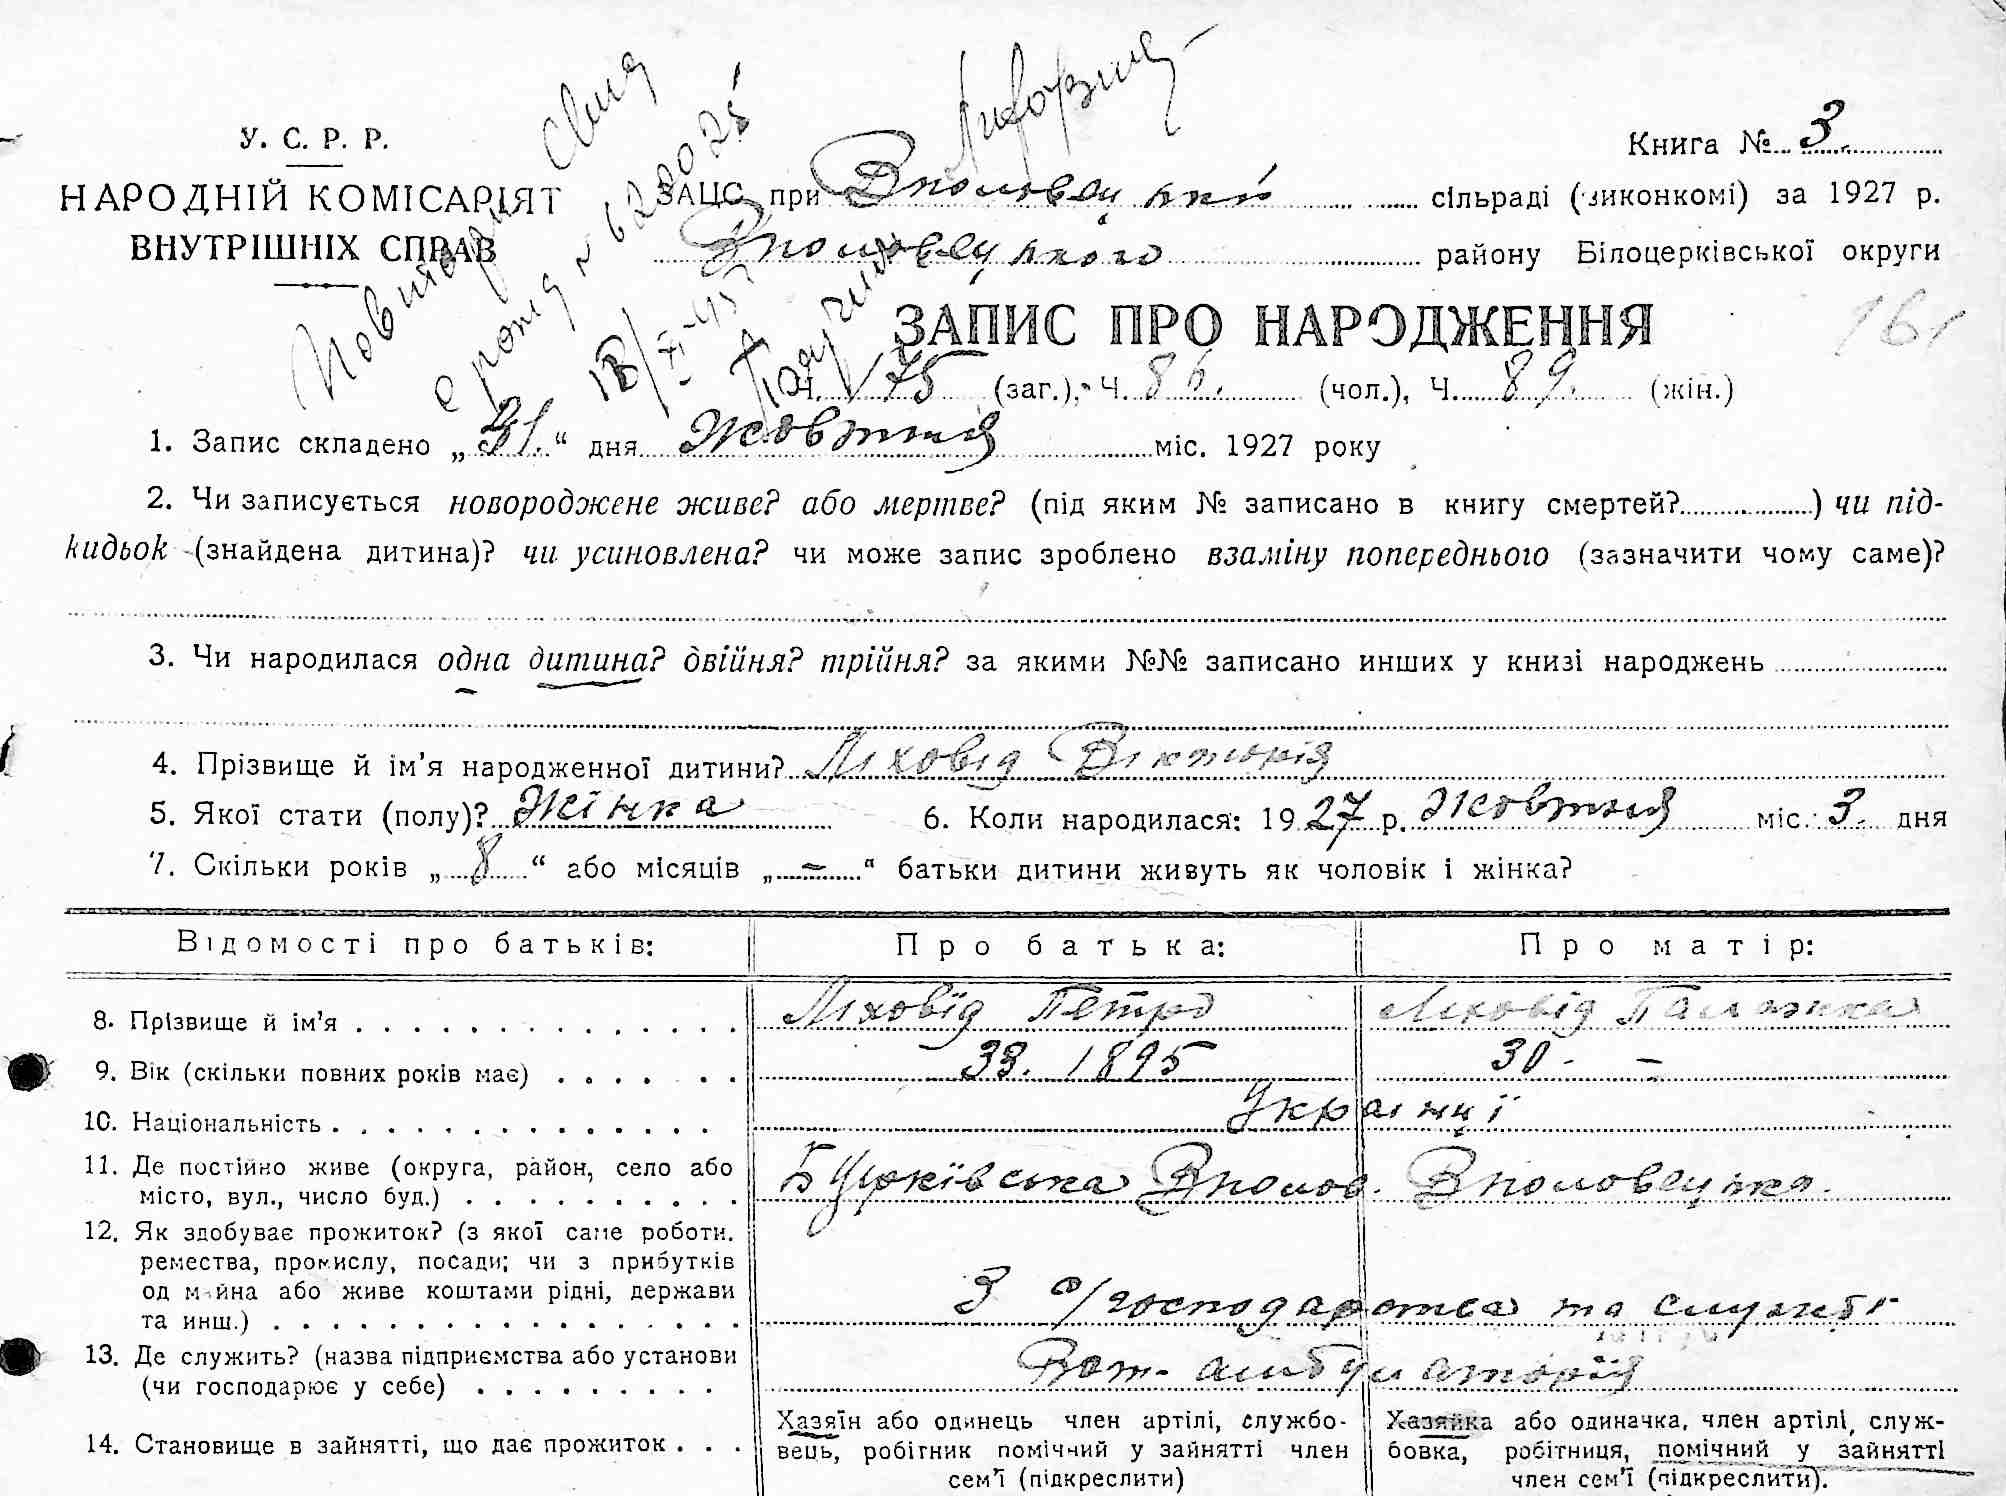 У. С. Р. Р.
НАРОДНІЙ КОМІСАРІЯТ
ВНУТРІШНІХ СПРАВ
Книга № 3.
ЗАЦС при Вполовецькій сільраді (виконкомі) за 1927 р.
Вполовецького району Білоцерківської округи
ЗАПИС ПРО НАРОДЖЕННЯ
161
Ч. 175 (заг.), Ч. 86. (чол.), Ч. 89. (жін.)
1. Запис складено „31.“ дня Жовтня міс. 1927 року
2. Чи записується новороджене живе? або мертве? (під яким № записано в книгу смертей?) чи під-
кидьок (знайдена дитина)? чи усиновлена? чи може запис зроблено взаміну попереднього (зазначити чому саме)?
3. Чи народилася одна дитина? двійня? трійня? за якими №№ записано инших у книзі народжень
4. Прізвище й ім’я народженної дитини? Ліховід Вікторія
5. Якої стати (полу)? Жінка 6. Коли народилася: 1927 р. Жовтня міс. 3. дня
7. Скільки років „8“ або місяців „–“ батьки дитини живуть як чоловік і жінка?
Відомості про батьків: Про батька: Про матір:
8. Прізвище й ім’я Ліховід Петро Ліховід Палажка
9. Вік (скільки повних років має) 33. 1895 30 - –
10. Національність Українці
11. Де постійно живе (округа, район, село або
місто, вул., число буд.) Б Церківська Вполов. Вполовецька.
12. Як здобуває прожиток? (з якої саме роботи,
ремества, промислу, посади; чи з прибутків
од майна або живе коштами рідні, держави
та инш.) З с/господарства та служби
13. Де служить? (назва підприємства або установи
(чи господарює у себе) Вет. амбулаторія
14. Становище в зайнятті, що дає прожиток
Хазяїн або одинець член артілі, службо-
вець, робітник помічний у зайнятті член
сем’ї (підкреслити)
Хазяйка або одиначка, член артілі, служ-
бовка, робітниця, помічний у зайнятті
член сем’ї (підкреслити).